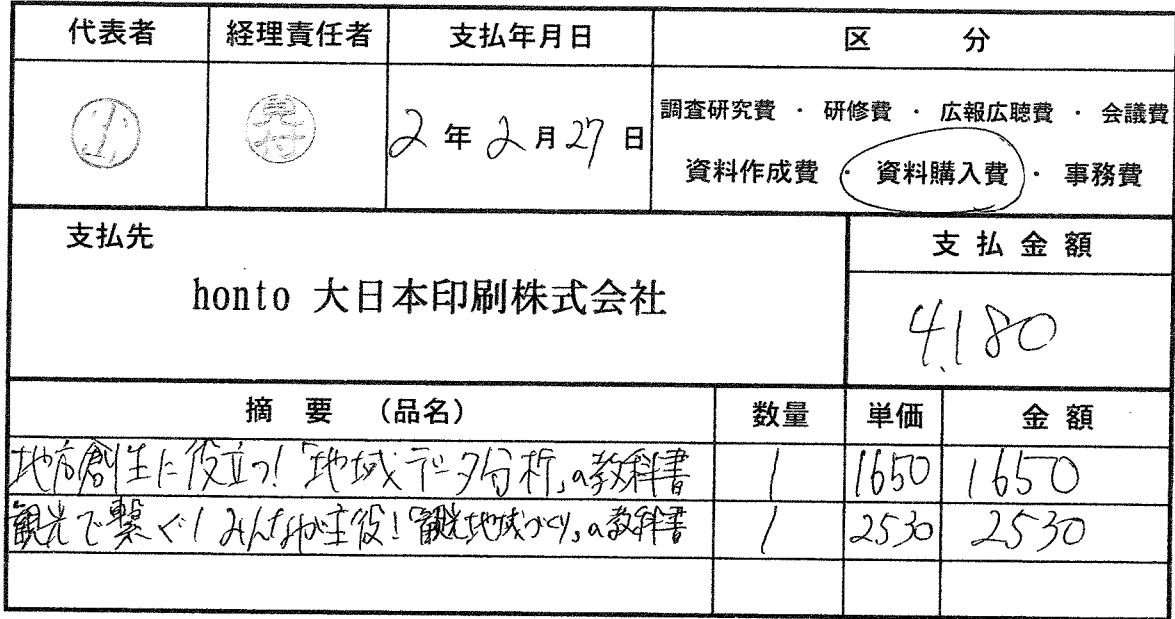 代表者 経理責任者 支払年月日 区 分
見付 2年2月27日 調査研究費 ・ 研修費 ・ 広報広聴費 ・ 会議費
資料作成費 ・ 資料購入費 ・ 事務費
支払先 支払金額
honto 大日本印刷株式会社
4,180
摘 要 (品名) 数量 単価 金額
地方創生に役立つ!「地域データ分析」の教科書 1 1650 1650
観光で繋ぐ!みんなが主役!「観光地域づくり」の教科書 1 2530 2530